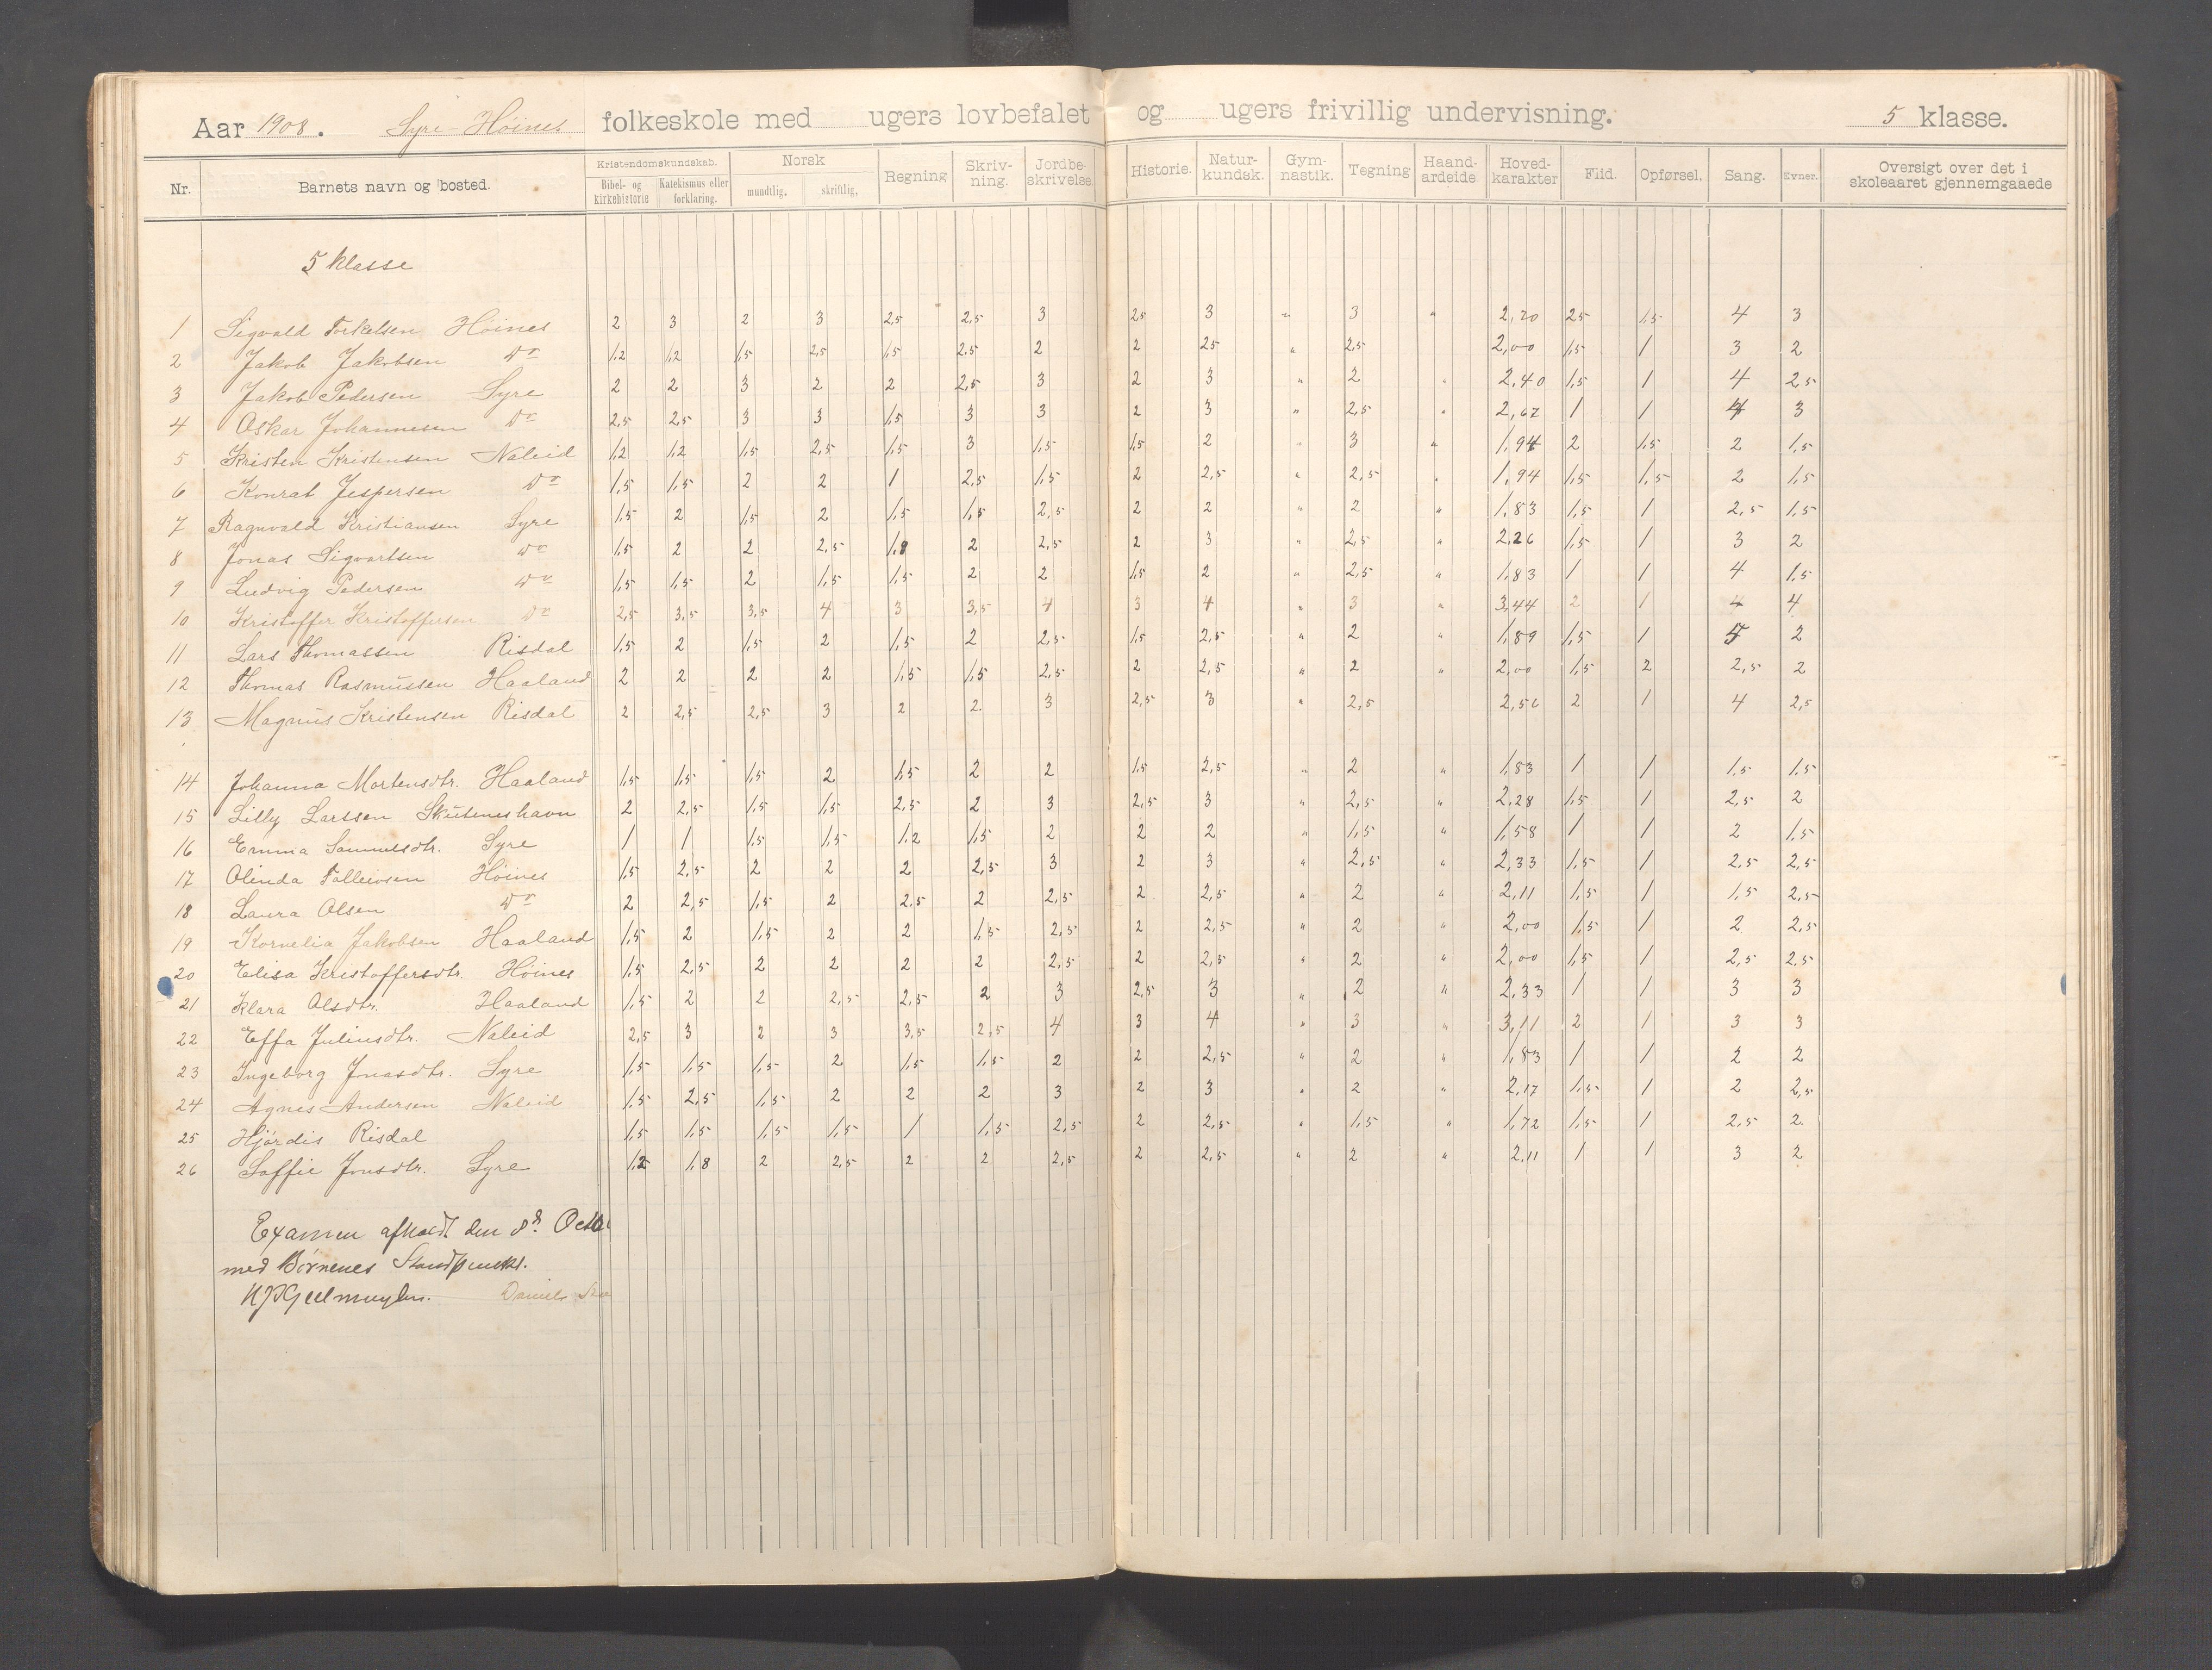 Aar 1908. Syre-Höines folkeskole med ugers lovbefalet og ugers frivillig undervisning. 5 klasse.
Nr. Barnets navn og bosted. Kristendomskundskab. Bibel- og kirkehistorie Katekismus eller forklaring. Norsk mundtlig. skriftlig, Regning Skriv-ning. Jordbe-skrivelse. Historie. Natur-kundsk. Gym-nastik. Tegning Haand-arbeide Hoved-karakter Flid. Opførsel. Sang. Evner. Oversigt over det i skoleaaret gjennemgaaede
5 klasse
1 Sigvald Torkelsen Höines 2 3 2 3 2,5 2,5 3 2,5 3 " 3 " 2,70 2,5 1,5 4 3
2 Jakob Jakobsen Do 1,2 1,2 1,5 2,5 1,5 2,5 2 2 2,5 " 2,5 2,00 1,5 1 3 2
3 Jakob Pedersen Syre 2 2 3 2 2 2,5 3 2 3 " 2 " 2,40 1,5 1 4 2,5
4 Oskar Johannesen Do 2,5 2,5 3 3 1,5 3 3 2 3 " 2,5 " 2,67 1 1 4 3
5 Kristen Kristensen Naleid 1,2 1,2 1,5 2,5 1,5 3 1,5 1,5 2 " 3 " 1,94 2 1,5 2 1,5
6 Konrat Jespersen Do 1,5 1,5 2 2 1 2,5 1,5 2 2,5 " 2,5 " 1,94 1,5 1,5 2 1,5
7 Ragnvald Kristiansen Syre 1,5 2 1,5 2 1,5 1,5 2,5 2 2 " 2 " 1,83 1,5 1 2,5 1,5
8 Jonas Sigvartsen Do 1,5 2 2 2,5 1,8 2 2,5 2 3 " 2,5 " 2,26 1,5 1 3 2
9 Ludvig Pedersen Do 1,5 1,5 2 1,5 1,5 2 2 1,5 2 " 2,5 " 1,83 1 1 4 1,5
10 Kristoffer Kristoffersen Do 2,5 3,5 3,5 4 3 3,5 4 3 4 " 3 " 3,44 2 1 4 4
11 Lars Thomassen Risdal 1,5 2 1,5 2 1,5 2 2,5 1,5 2,5 " 2 " 1,89 1,5 1 5 2
12 Thomas Rasmussen Haaland 2 2 2 2 1,5 1,5 2,5 2 2,5 " 2 " 2,00 1,5 2 2,5 2
13 Magnus Kristensen Risdal 2 2,5 2,5 3 2 2 3 2,5 3 " 2,5 2,56 2 1 4 2,5
14 Johanna Mortensdtr. Haaland 1,5 1,5 1,5 2 1,5 2 2 1,5 2,5 " 2 " 1,83 1 1 1,5 1,5
15 Lilly Larssen Skuteneshavn 2 2,5 1,5 1,5 2,5 2 3 2,5 3 " 2,5 " 2,28 1,5 1 2,5 2
16 Emma Samuelsdtr. Syre 1 1 1,5 1,5 1,2 1,5 2 2 2 " 1,5 " 1,58 1 1 2 1,5
17 Olinda Höines 1,5 2,5 2 2 2 2,5 3 2 3 " 2,5 " 2,33 1,5 1 2,5 2,5
18 Laura Olsen Do 2 2,5 1,5 2 2,5 2 2,5 2 2,5 " 2 " 2,11 1,5 1 1,5 2,5
19 Kornelia Jakobsen Haaland 1,5 2 1,5 2 2 1,5 2,5 2 2,5 " 2 " 2,00 1,5 1 2 2,5
20 Elisa Kristoffersdtr. Höines 1,5 2,5 2 2 2 2 2,5 2 2,5 " 2 " 2,00 1,5 1 2,5 2,5
21 Klara Olsdtr. Haaland 1,5 2 2 2,5 2,5 2 3 2,5 3 " 2 " 2,33 1 1 3 3
22 Effa Juliusdtr. Naleid 2,5 3 2 3 3,5 2,5 4 3 4 " 3 " 3,11 2 1 3 3
23 Ingeborg Jonasdtr. Syre 1,5 1,5 1,5 2 1,5 1,5 2 2 2,5 " 2 " 1,83 1 1 2 2
24 Agnes Andersen Naleid 1,5 2,5 1,5 2 2 2 3 2 3 " 2 " 2,17 1,5 1 2 2,5
25 Hjördis Risdal 1,5 1,5 1,5 1,5 1 1,5 2,5 2 2,5 " 1,5 " 1,72 1,5 1 2,5 2
26 Saffie Jonsdtr. Syre 1,2 1,8 2 2,5 2 2 2,5 2 2,5 " 2 " 2,11 1 1 3 2
Examen afholdt den 8d
med Børnenes Standpunkt.
Daniel